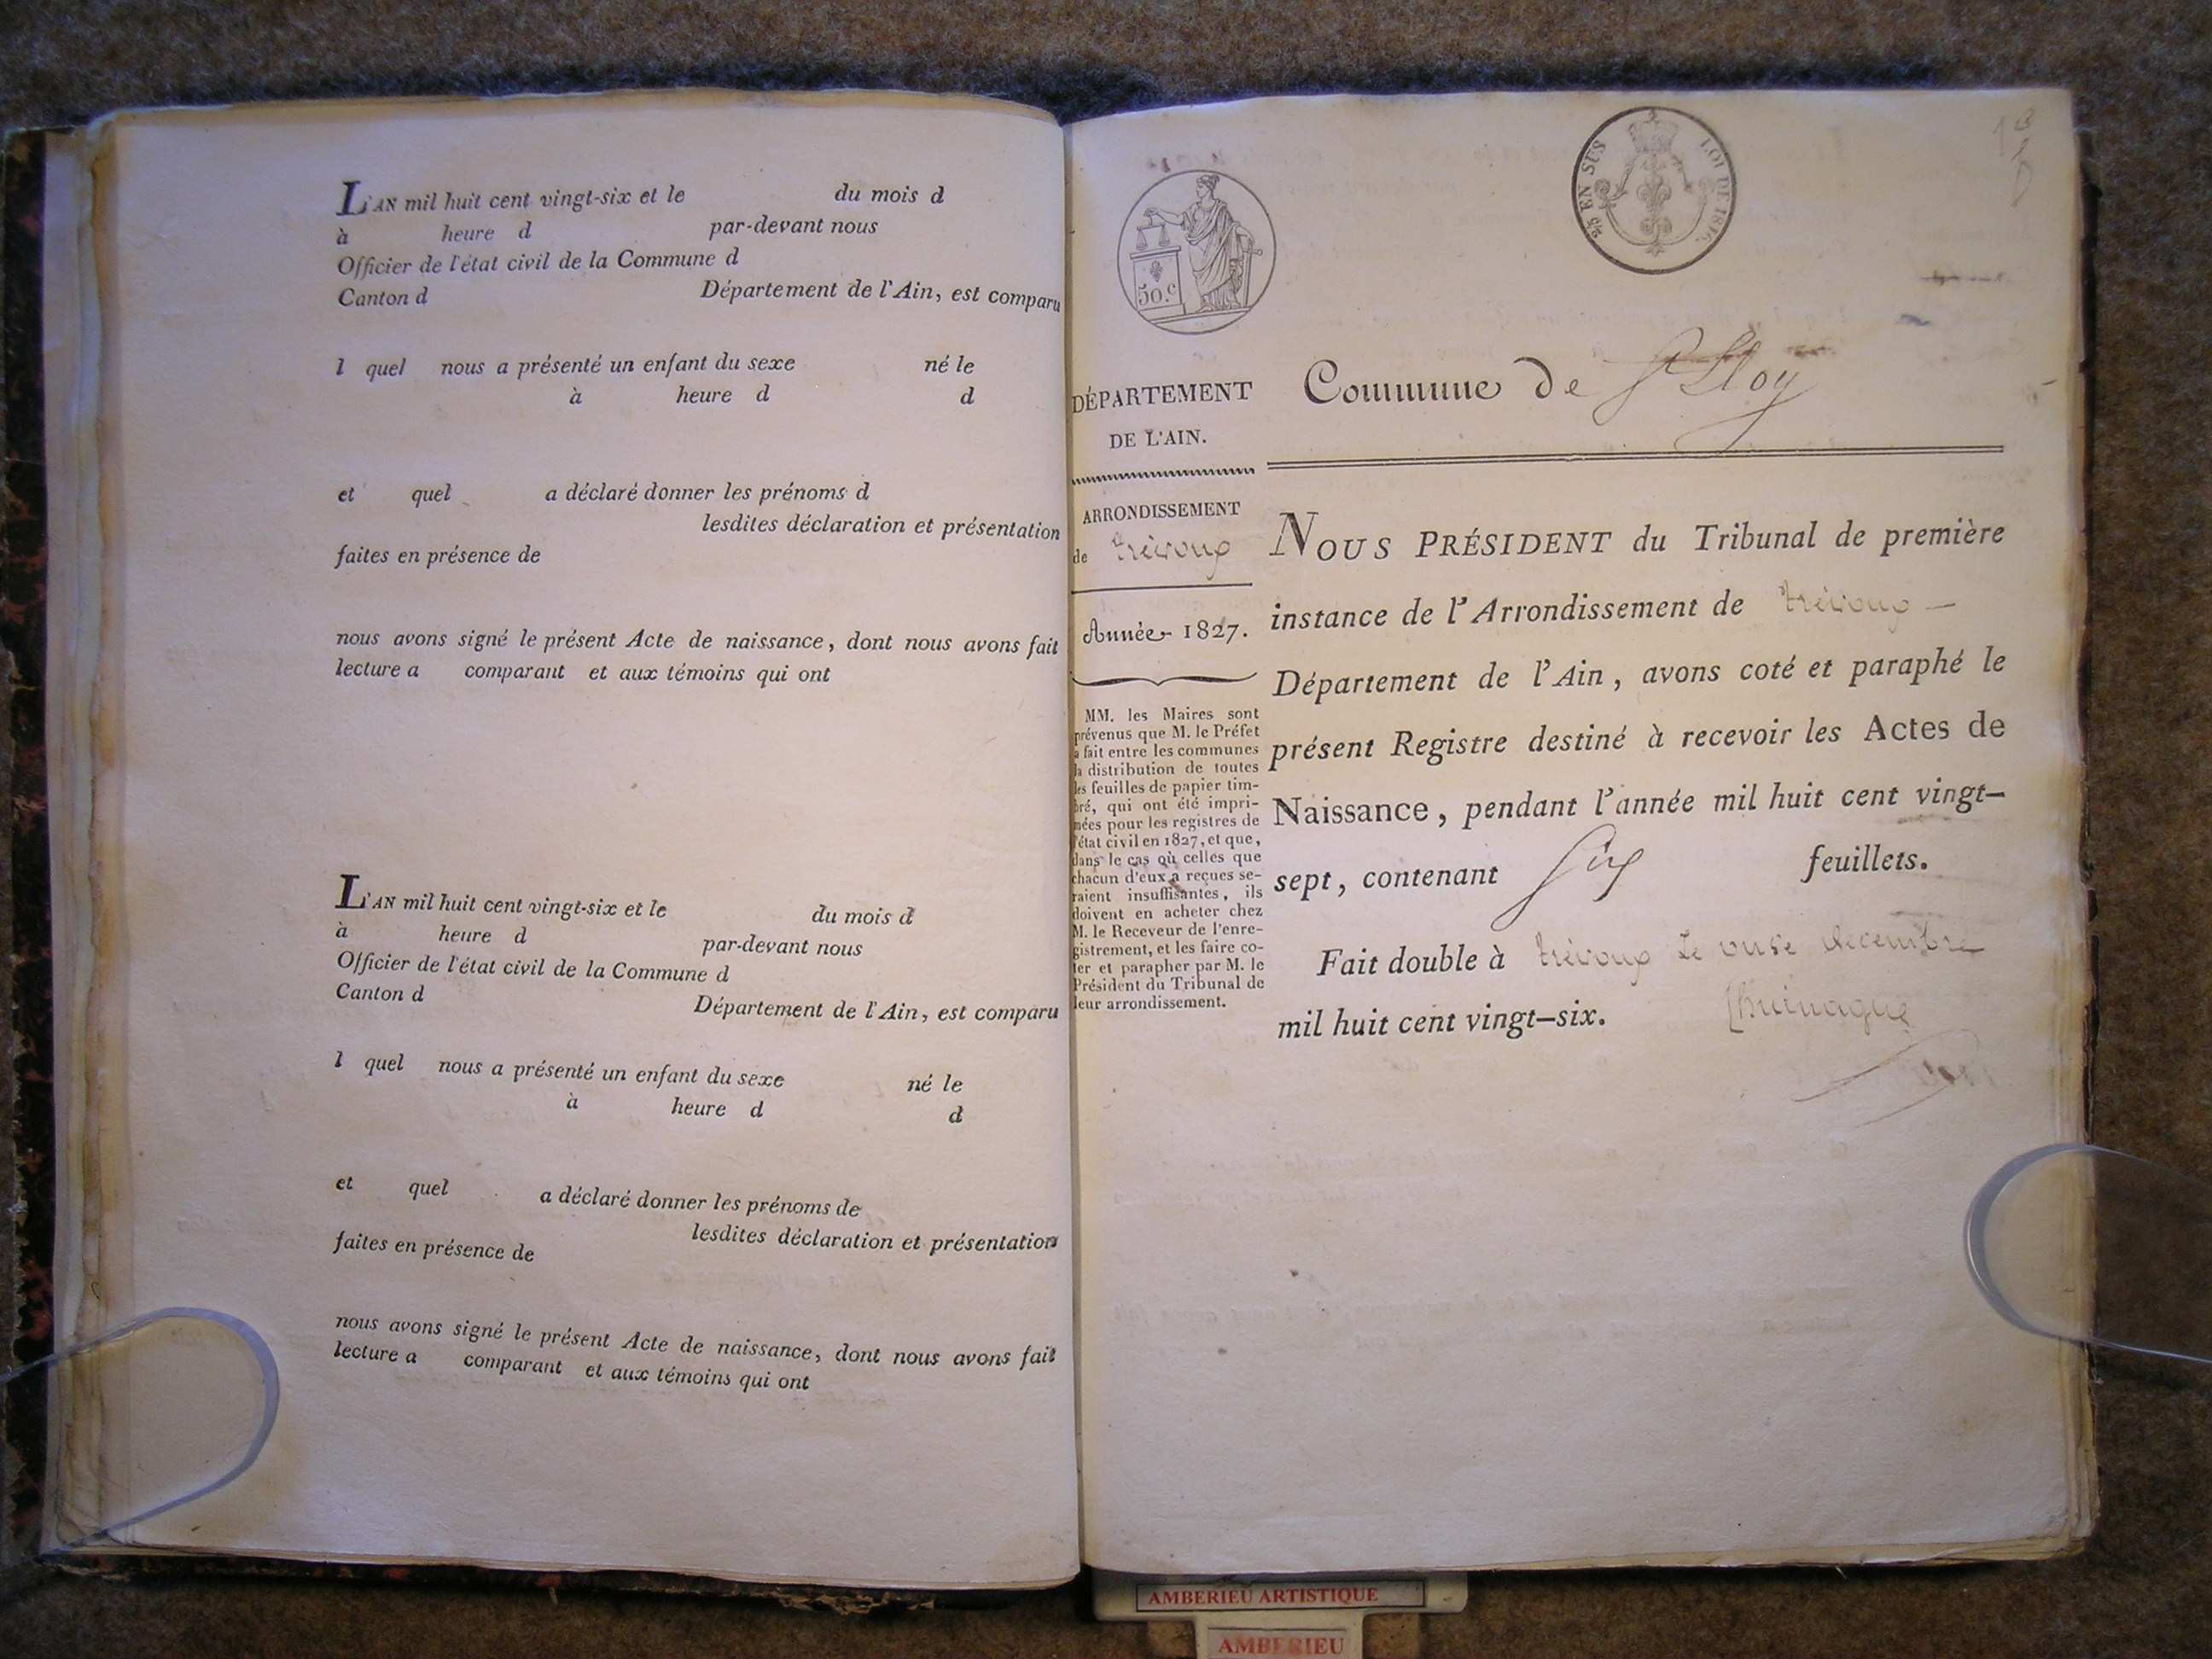 L'AN mil huit cent vingt-six et le du mois d
à heure d par-devant nous
Officier de l'état civil de la Commune d
Canton d Département de l'Ain, est comparu
l quel nous a présenté un enfant du sexe né le
à heure d d
et quel a déclaré donner les prénoms d
lesdites déclaration et présentation
faites en présence de
nous avons signé le présent Acte de naissance, dont nous avons fait
lecture a comparant et aux témoins qui ont
L'AN mil huit cent vingt-six et le du mois d
à heure d par-devant nous
Officier de l'état civil de la Commune d
Canton d Département de l'Ain, est comparu
l quel nous a présenté un enfant du sexe né le
à heure d d
et quel a déclaré donner les prénoms de
lesdites déclaration et présentation
faites en présence de
nous avons signé le présent Acte de naissance, dont nous avons fait
lecture a comparant et aux témoins qui ont
50.c
EN SUS LOI DE 1816.
DÉPARTEMENT
DE L'AIN.
ARRONDISSEMENT
de trévoux
Année 1827.
MM. les Maires sont
prévenus que M. le Préfet
a fait entre les communes
la distribution de toutes
les feuilles de papier tim-
bré, qui ont été impri-
mées pour les registres de
l'état civil en 1827, et que,
dans le cas où celles que
chacun d'eux a reçues se-
raient insuffisantes, ils
doivent en acheter chez
M. le Receveur de l'enre-
gistrement, et les faire co-
ter et parapher par M. le
Président du Tribunal de
leur arrondissement.
Commune de St Eloy
NOUS PRÉSIDENT du Tribunal de première
instance de l'Arrondissement de trévoux
Département de l'Ain, avons coté et paraphé le
présent Registre destiné à recevoir les Actes de
Naissance, pendant l'année mil huit cent vingt-
sept, contenant Six feuillets.
Fait double à trévoux le onze décembre
mil huit cent vingt-six.
AMBERIEU ARTISTIQUE
AMBERIEU